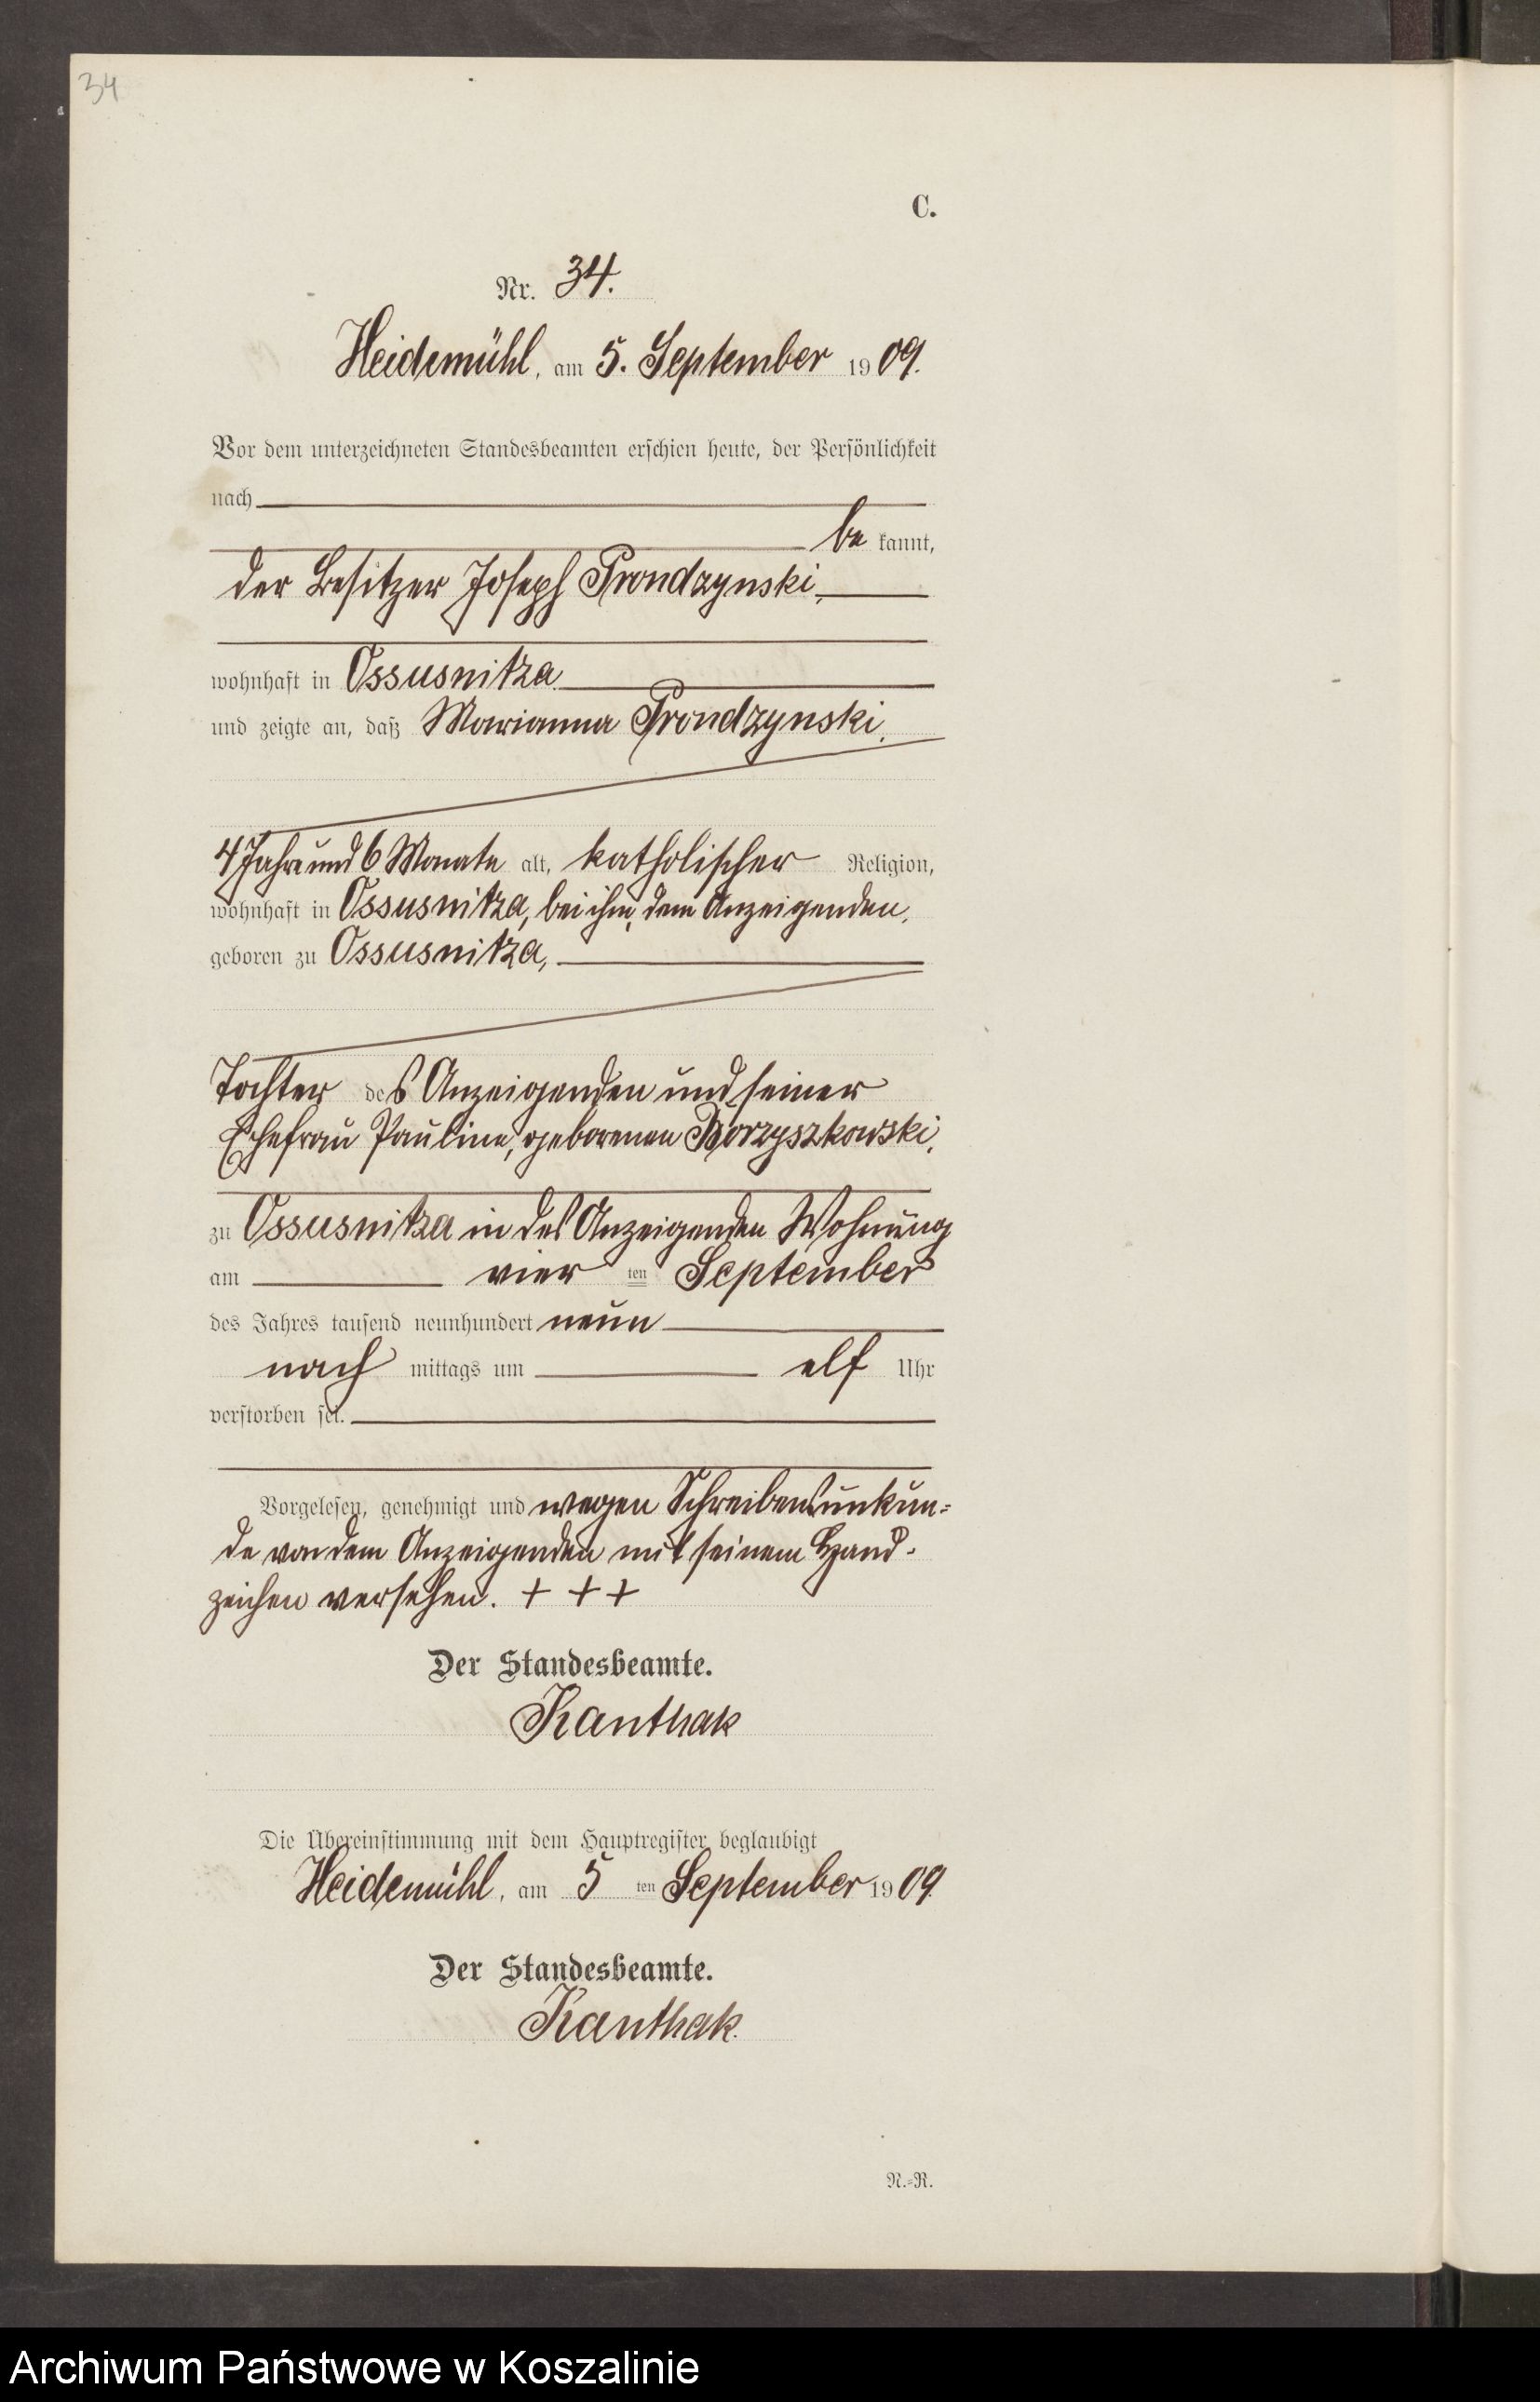 34
C.
Nr. 34.
Heidemühl, am 5. September 1909.
Vor dem unterzeichneten Standesbeamten erschien heute, der Persönlichkeit
nach
be kannt,
der Besitzer Joseph Prondzynski,
wohnhaft in Ossusnitza
und zeigte an, daß Marianna Prondzynski,
4 Jahre und 6 Monate alt, katholischer Religion,
wohnhaft in Ossusnitza, bei ihm, dem Anzeigenden,
geboren zu Ossusnitza,
Tochter des Anzeigenden und seiner
Ehefrau Pauline, geborenen Borzyszkowski,
zu Ossusnitza in des Anzeigenden Wohnung
am vier ten September
des Jahres tausend neunhundert neun
nach mittags um elf Uhr
verstorben sei.
Vorgelesen, genehmigt und wegen Schreibensunkun-
de von dem Anzeigenden mit seinem Hand-
zeichen versehen. + + +
Der Standesbeamte.
Kanthak
Die Übereinstimmung mit dem Hauptregister beglaubigt
Heidemühl, am 5 ten September 1909.
Der Standesbeamte.
Kanthak.
N.-R.
Archiwum Państwowe w Koszalinie